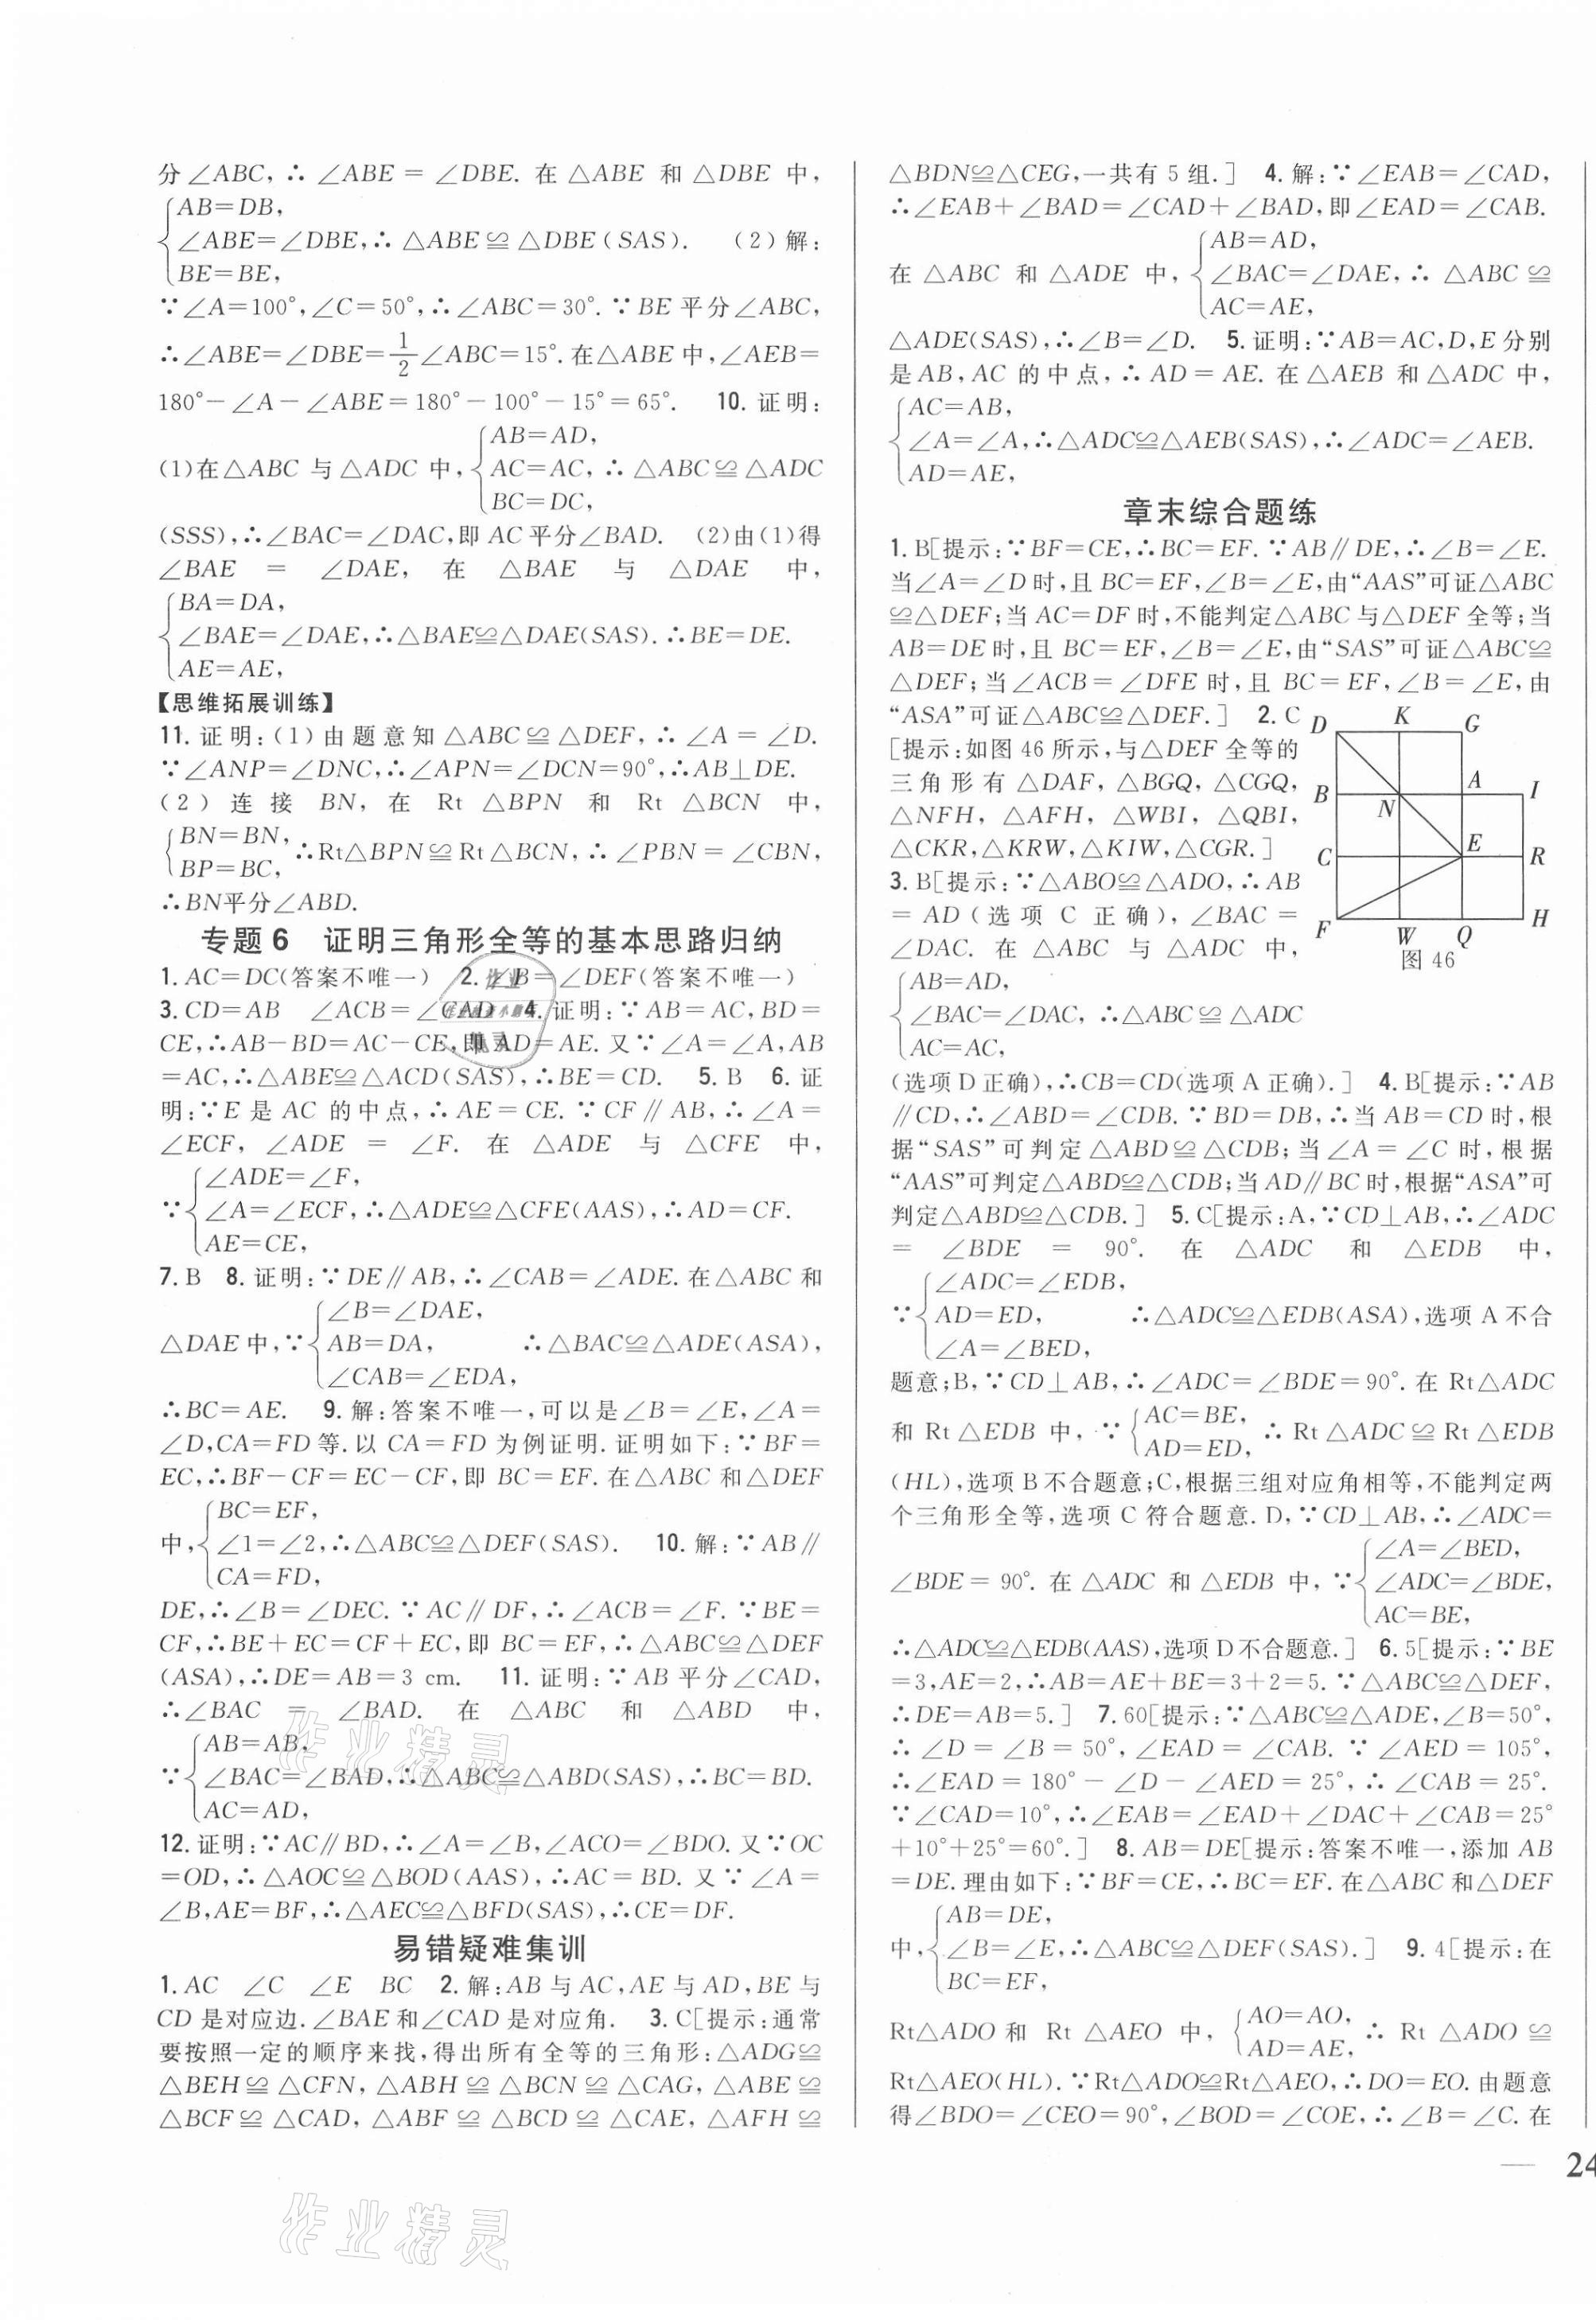 分∠ABC,∴∠ABE=∠DBE.在△ABE和△DBE中,
AB=DB,
∠ABE=∠DBE,∴△ABE≌△DBE(SAS). (2)解:
BE=BE,
∵∠A=100°,∠C=50°,∴∠ABC=30°.∵BE平分∠ABC,
∴∠ABE=∠DBE=1/2∠ABC=15°.在△ABE中,∠AEB=
180°-∠A-∠ABE=180°-100°-15°=65°. 10.证明:
(1)在△ABC与△ADC中,
AB=AD,
AC=AC,∴△ABC≌△ADC
BC=DC,
(SSS),∴∠BAC=∠DAC,即AC平分∠BAD. (2)由(1)得
∠BAE=∠DAE,在△BAE与△DAE中,
BA=DA,
∠BAE=∠DAE,∴△BAE≌△DAE(SAS).∴BE=DE.
AE=AE,
【思维拓展训练】
11.证明:(1)由题意知△ABC≌△DEF,∴∠A=∠D.
∵∠ANP=∠DNC,∴∠APN=∠DCN=90°,∴AB⊥DE.
(2)连接BN,在Rt△BPN和Rt△BCN中,
BN=BN,
BP=BC,
∴Rt△BPN≌Rt△BCN,∴∠PBN=∠CBN,
∴BN平分∠ABD.
专题6 证明三角形全等的基本思路归纳
1.AC=DC(答案不唯一) 2.∠B=∠DEF(答案不唯一)
3.CD=AB ∠ACB=∠CAD 4.证明:∵AB=AC,BD=
CE,∴AB-BD=AC-CE,即AD=AE.又∵∠A=∠A,AB
=AC,∴△ABE≌△ACD(SAS),∴BE=CD. 5.B 6.证
明:∵E是AC的中点,∴AE=CE.∵CF∥AB,∴∠A=
∠ECF,∠ADE=∠F.在△ADE与△CFE中,
∠ADE=∠F,
∵∠A=∠ECF,∴△ADE≌△CFE(AAS),∴AD=CF.
AE=CE,
7.B 8.证明:∵DE∥AB,∴∠CAB=∠ADE.在△ABC和
∠B=∠DAE,
△DAE中,∵AB=DA, ∴△BAC≌△ADE(ASA),
∠CAB=∠EDA,
∴BC=AE. 9.解:答案不唯一,可以是∠B=∠E,∠A=
∠D,CA=FD等.以CA=FD为例证明.证明如下:∵BF=
EC,∴BF-CF=EC-CF,即BC=EF.在△ABC和△DEF
BC=EF,
中,∠1=∠2,∴△ABC≌△DEF(SAS). 10.解:∵AB∥
CA=FD,
DE,∴∠B=∠DEC.∵AC∥DF,∴∠ACB=∠F.∵BE=
CF,∴BE+EC=CF+EC,即BC=EF,∴△ABC≌△DEF
(ASA),∴DE=AB=3 cm. 11.证明:∵AB平分∠CAD,
∴∠BAC=∠BAD.在△ABC和△ABD中,
AB=AB,
∵∠BAC=∠BAD,∴△ABC≌△ABD(SAS),∴BC=BD.
AC=AD,
12.证明:∵AC∥BD,∴∠A=∠B,∠ACO=∠BDO.又∵OC
=OD,∴△AOC≌△BOD(AAS),∴AC=BD.又∵∠A=
∠B,AE=BF,∴△AEC≌△BFD(SAS),∴CE=DF.
易错疑难集训
1.AC ∠C ∠E BC 2.解:AB与AC,AE与AD,BE与
CD是对应边.∠BAE和∠CAD是对应角. 3.C[提示:通常
要按照一定的顺序来找,得出所有全等的三角形:△ADG≌
△BEH≌△CFN,△ABH≌△BCN≌△CAG,△ABE≌
△BCF≌△CAD,△ABF≌△BCD≌△CAE,△AFH≌
△BDN≌△CEG,一共有5组.] 4.解:∵∠EAB=∠CAD,
∴∠EAB+∠BAD=∠CAD+∠BAD,即∠EAD=∠CAB.
AB=AD,
在△ABC和△ADE中,∠BAC=∠DAE,∴△ABC≌
AC=AE,
△ADE(SAS),∴∠B=∠D. 5.证明:∵AB=AC,D,E分别
是AB,AC的中点,∴AD=AE.在△AEB和△ADC中,
AC=AB,
∠A=∠A,∴△ADC≌△AEB(SAS),∴∠ADC=∠AEB.
AD=AE,
章末综合题练
1.B[提示:∵BF=CE,∴BC=EF.∵AB∥DE,∴∠B=∠E.
当∠A=∠D时,且BC=EF,∠B=∠E,由“AAS”可证△ABC
≌△DEF;当AC=DF时,不能判定△ABC与△DEF全等;当
AB=DE时,且BC=EF,∠B=∠E,由“SAS”可证△ABC≌
△DEF;当∠ACB=∠DFE时,且BC=EF,∠B=∠E,由
“ASA”可证△ABC≌△DEF.] 2.C
[提示:如图46所示,与△DEF全等的
三角形有△DAF,△BGQ,△CGQ,
△NFH,△AFH,△WBI,△QBI,
△CKR,△KRW,△KIW,△CGR.]
D K G
B N A I
C E R
F W Q H
图46
3.B[提示:∵△ABO≌△ADO,∴AB
=AD(选项C正确),∠BAC=
∠DAC.在△ABC与△ADC中,
AB=AD,
∠BAC=∠DAC,∴△ABC≌△ADC
AC=AC,
(选项D正确),∴CB=CD(选项A正确).] 4.B[提示:∵AB
∥CD,∴∠ABD=∠CDB.∵BD=DB,∴当AB=CD时,根
据“SAS”可判定△ABD≌△CDB;当∠A=∠C时,根据
“AAS”可判定△ABD≌△CDB;当AD∥BC时,根据“ASA”可
判定△ABD≌△CDB.] 5.C[提示:A,∵CD⊥AB,∴∠ADC
=∠BDE=90°.在△ADC和△EDB中,
∠ADC=∠EDB,
∵AD=ED, ∴△ADC≌△EDB(ASA),选项A不合
∠A=∠BED,
题意;B,∵CD⊥AB,∴∠ADC=∠BDE=90°.在Rt△ADC
和Rt△EDB中,∵
AC=BE,
AD=ED,
∴Rt△ADC≌Rt△EDB
(HL),选项B不合题意;C,根据三组对应角相等,不能判定两
个三角形全等,选项C符合题意.D,∵CD⊥AB,∴∠ADC=
∠A=∠BED,
∠BDE=90°.在△ADC和△EDB中,∵∠ADC=∠BDE,
AC=BE,
∴△ADC≌△EDB(AAS),选项D不合题意.] 6.5[提示:∵BE
=3,AE=2,∴AB=AE+BE=3+2=5.∵△ABC≌△DEF,
∴DE=AB=5.] 7.60[提示:∵△ABC≌△ADE,∠B=50°,
∴∠D=∠B=50°,∠EAD=∠CAB.∵∠AED=105°,
∴∠EAD=180°-∠D-∠AED=25°,∴∠CAB=25°.
∵∠CAD=10°,∴∠EAB=∠EAD+∠DAC+∠CAB=25°
+10°+25°=60°.] 8.AB=DE[提示:答案不唯一,添加AB
=DE.理由如下:∵BF=CE,∴BC=EF.在△ABC和△DEF
AB=DE,
中,∠B=∠E,∴△ABC≌△DEF(SAS).] 9.4[提示:在
BC=EF,
Rt△ADO和Rt△AEO中,
AO=AO,
AD=AE,
∴Rt△ADO≌
Rt△AEO(HL).∵Rt△ADO≌Rt△AEO,∴DO=EO.由题意
得∠BDO=∠CEO=90°,∠BOD=∠COE,∴∠B=∠C.在
— 24
作业精灵
作业精灵